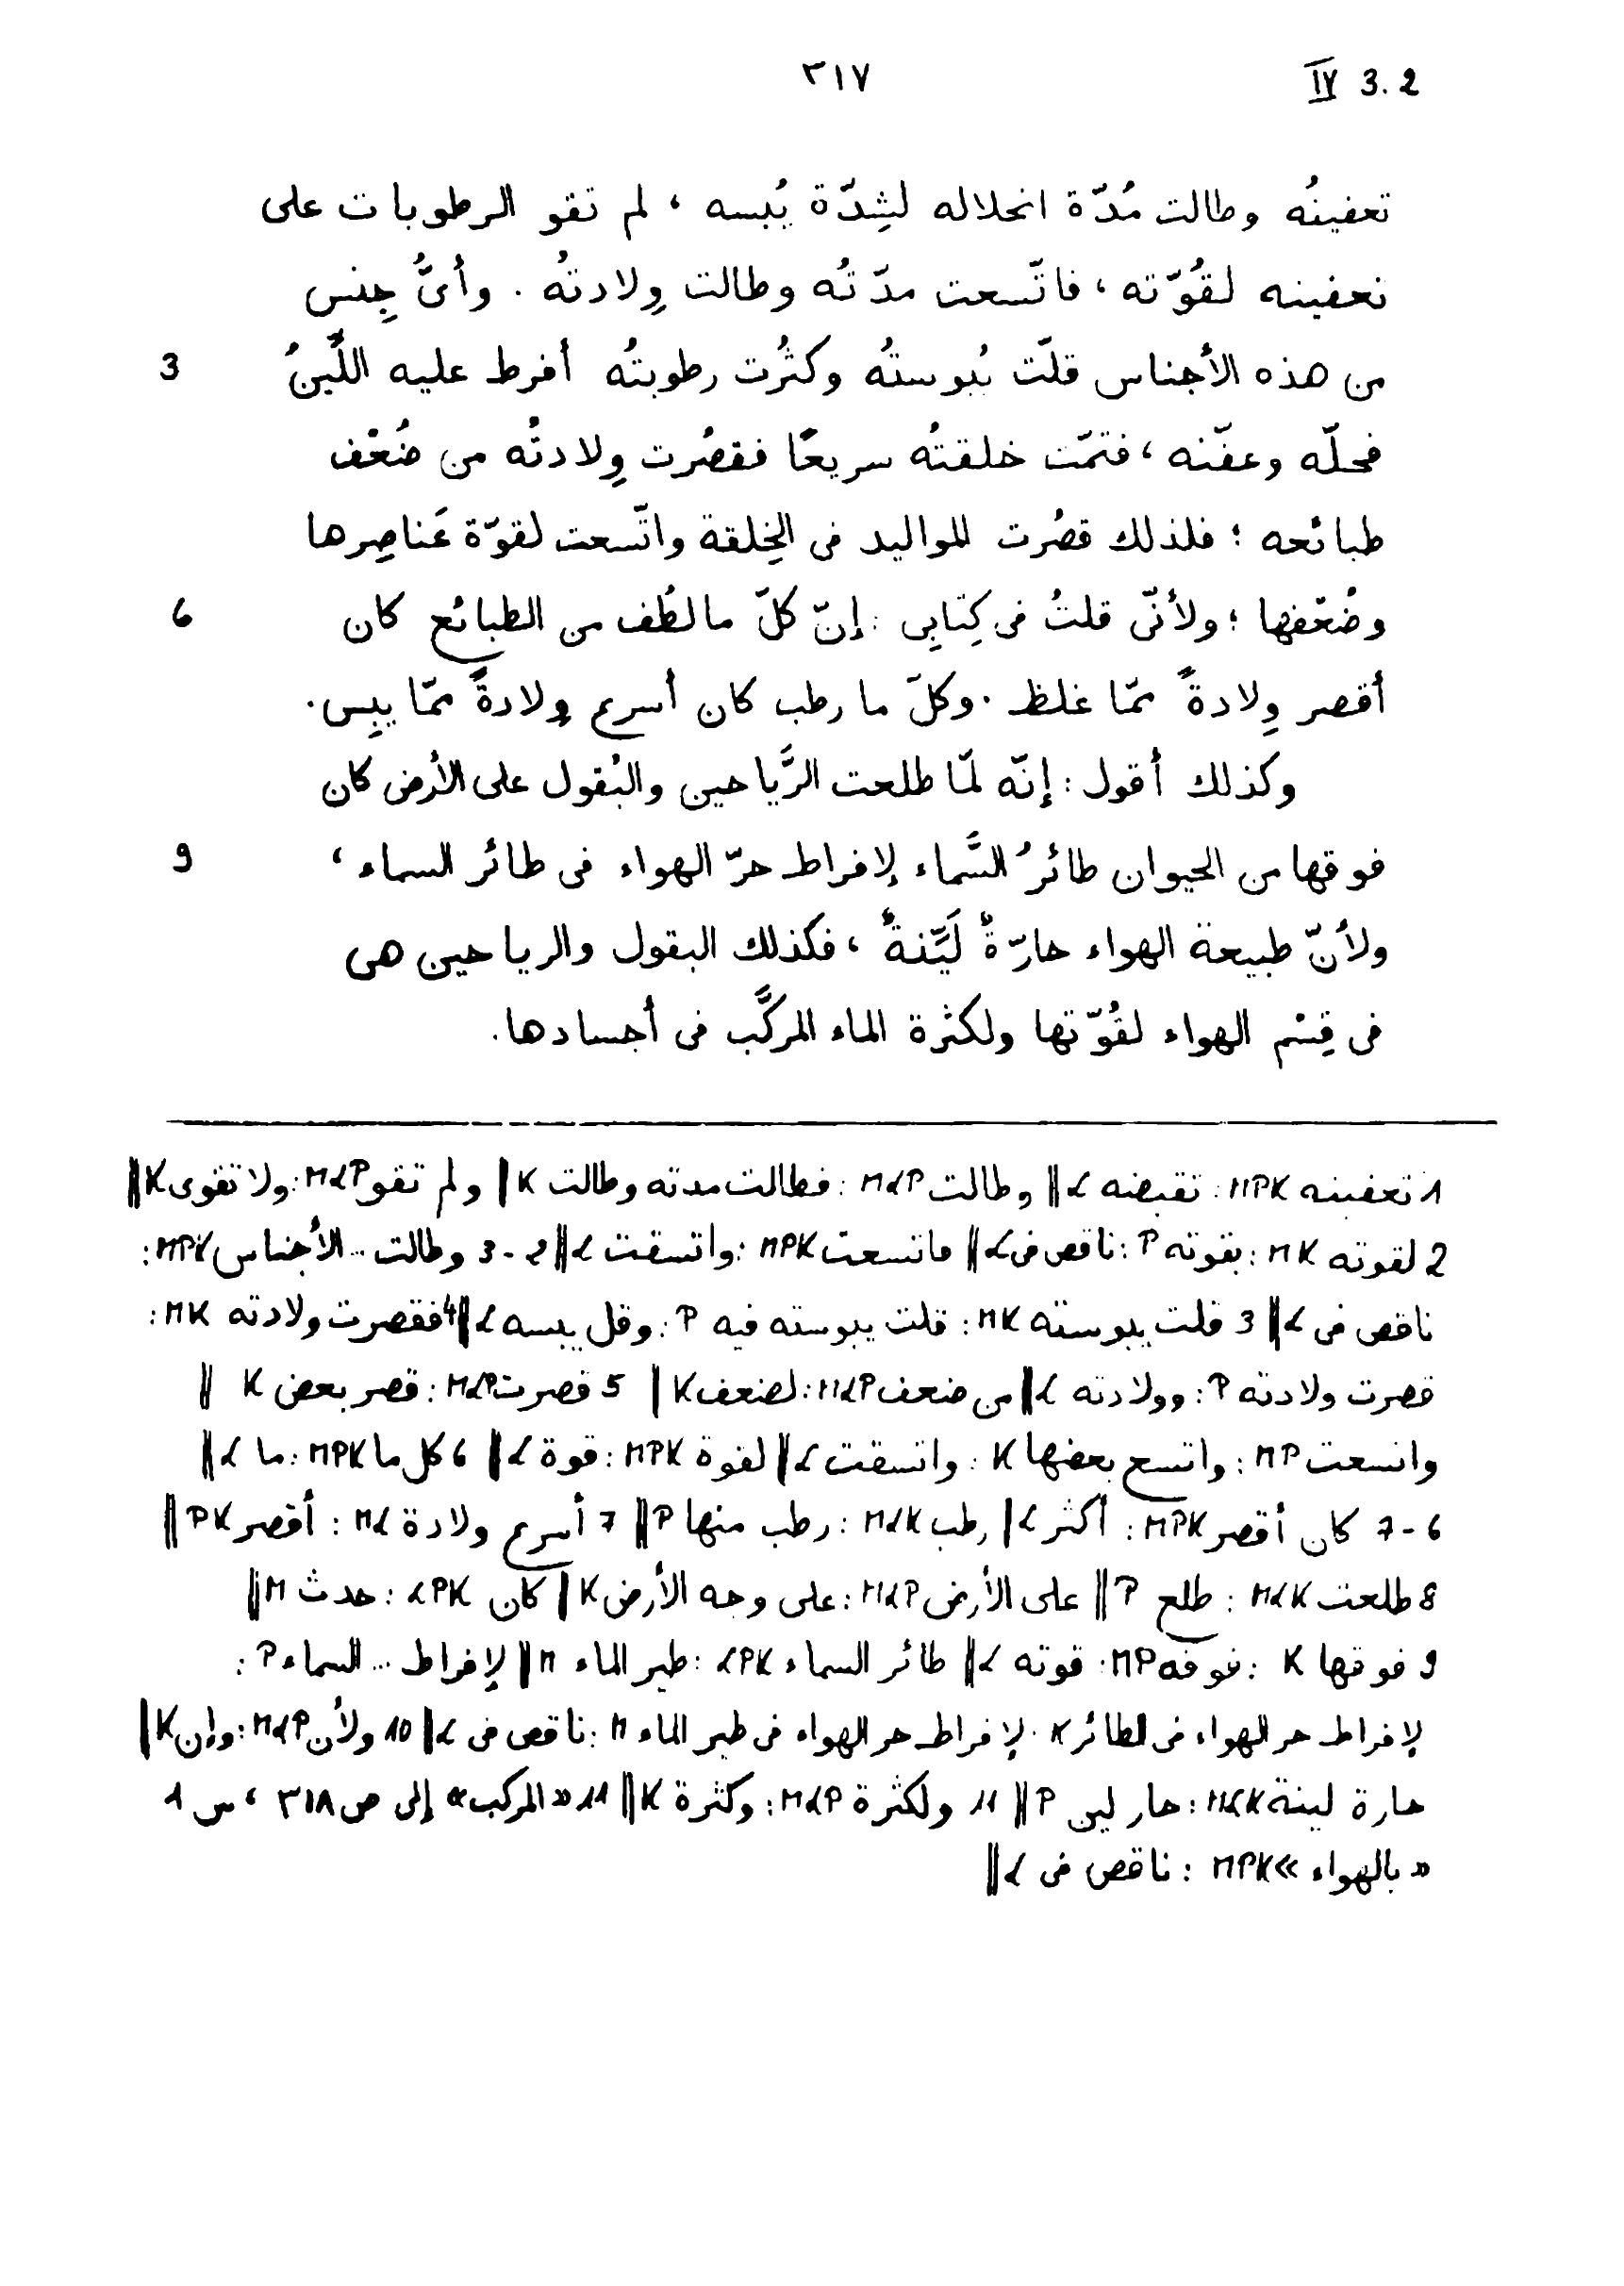 IV 3.2 ٣١٧
تعفينُه وطالت مُدّة انحلاله لشِدّة يُبسه ، لم تقو الرطوبات على
تعفينه لقُوّته ، فاتّسعت مدّتُه وطالت وِلادتُه . وأىُّ جِنس
من هذه الأجناس قلّت يُبوستُه وكثُرت رطوبتُه أفرط عليه اللِّينُ 3
فحلّه وعفّنه ، فتمّت خلقتُه سريعًا فقصُرت وِلادتُه من ضُعْف
طبائعه ؛ فلذلك قصُرت المواليد فى الخِلقة واتّسعت لقوّة عَناصِرها
وضُعْفها ؛ ولأنّى قلتُ فى كِتابِى : إنّ كلّ ما لطُف من الطبائع كان 6
أقصر وِلادةً ممّا غلظ . وكلّ ما رطب كان أسرع وِلادةً ممّا يبِس .
وكذلك أقول : إنّه لمّا طلعت الرَّياحين والبُقول على الأرض كان
فوقها من الحيوان طائرُ السَّماء لإفراط حرّ الهواء فى طائر السماء ، 9
ولأنّ طبيعة الهواء حارّةٌ لَيِّنةٌ ، فكذلك البقول والرياحين هى
فى قِسْم الهواء لقُوّتها ولكثرة الماء المركَّب فى أجسادها .
1 تعفينه MPK : تقبضه L || وطالت MLP : فطالت مدته وطالت K | ولم تقو MLP : ولا تقوى K ||
2 لقوته MK : بقوته P : ناقص فى L || فاتسعت MPK : واتسقت L || 2-3 وطالت ... الأجناس MPK :
ناقص فى L || 3 قلت يبوسته MK : قلت يبوسته فيه P : وقل يبسه L || 4 فقصرت ولادته MK :
قصرت ولادته P : وولادته L || من ضعف MLP : لضعف K | 5 قصرت MLP : قصر بعض K ||
واتسعت MP : واتسع بعضها K : واتسقت L || لقوة MPK : قوة L || 6 كل ما MPK : ما L ||
6-7 كان أقصر MPK : أكثر L | رطب MLK : رطب منها P || 7 أسرع ولادة ML : أقصر PK ||
8 طلعت MLK : طلع P || على الأرض MLP : على وجه الأرض K | كان LPK : حدث M ||
9 فوقها K : فوقه MP : قوته L || طائر السماء LPK : طير الماء M || لإفراط ... السماء P :
لإفراط حر الهواء فى الطائر K : لإفراط حر الهواء فى طير الماء M : ناقص فى L || 10 ولأن MLP : وإن K |
حارة لينة MLK : حار لين P || 11 ولكثرة MLP : وكثرة K || 11 « المركب » إلى ص ٣١٨ ، س 1
« بالهواء » MPK : ناقص فى L ||